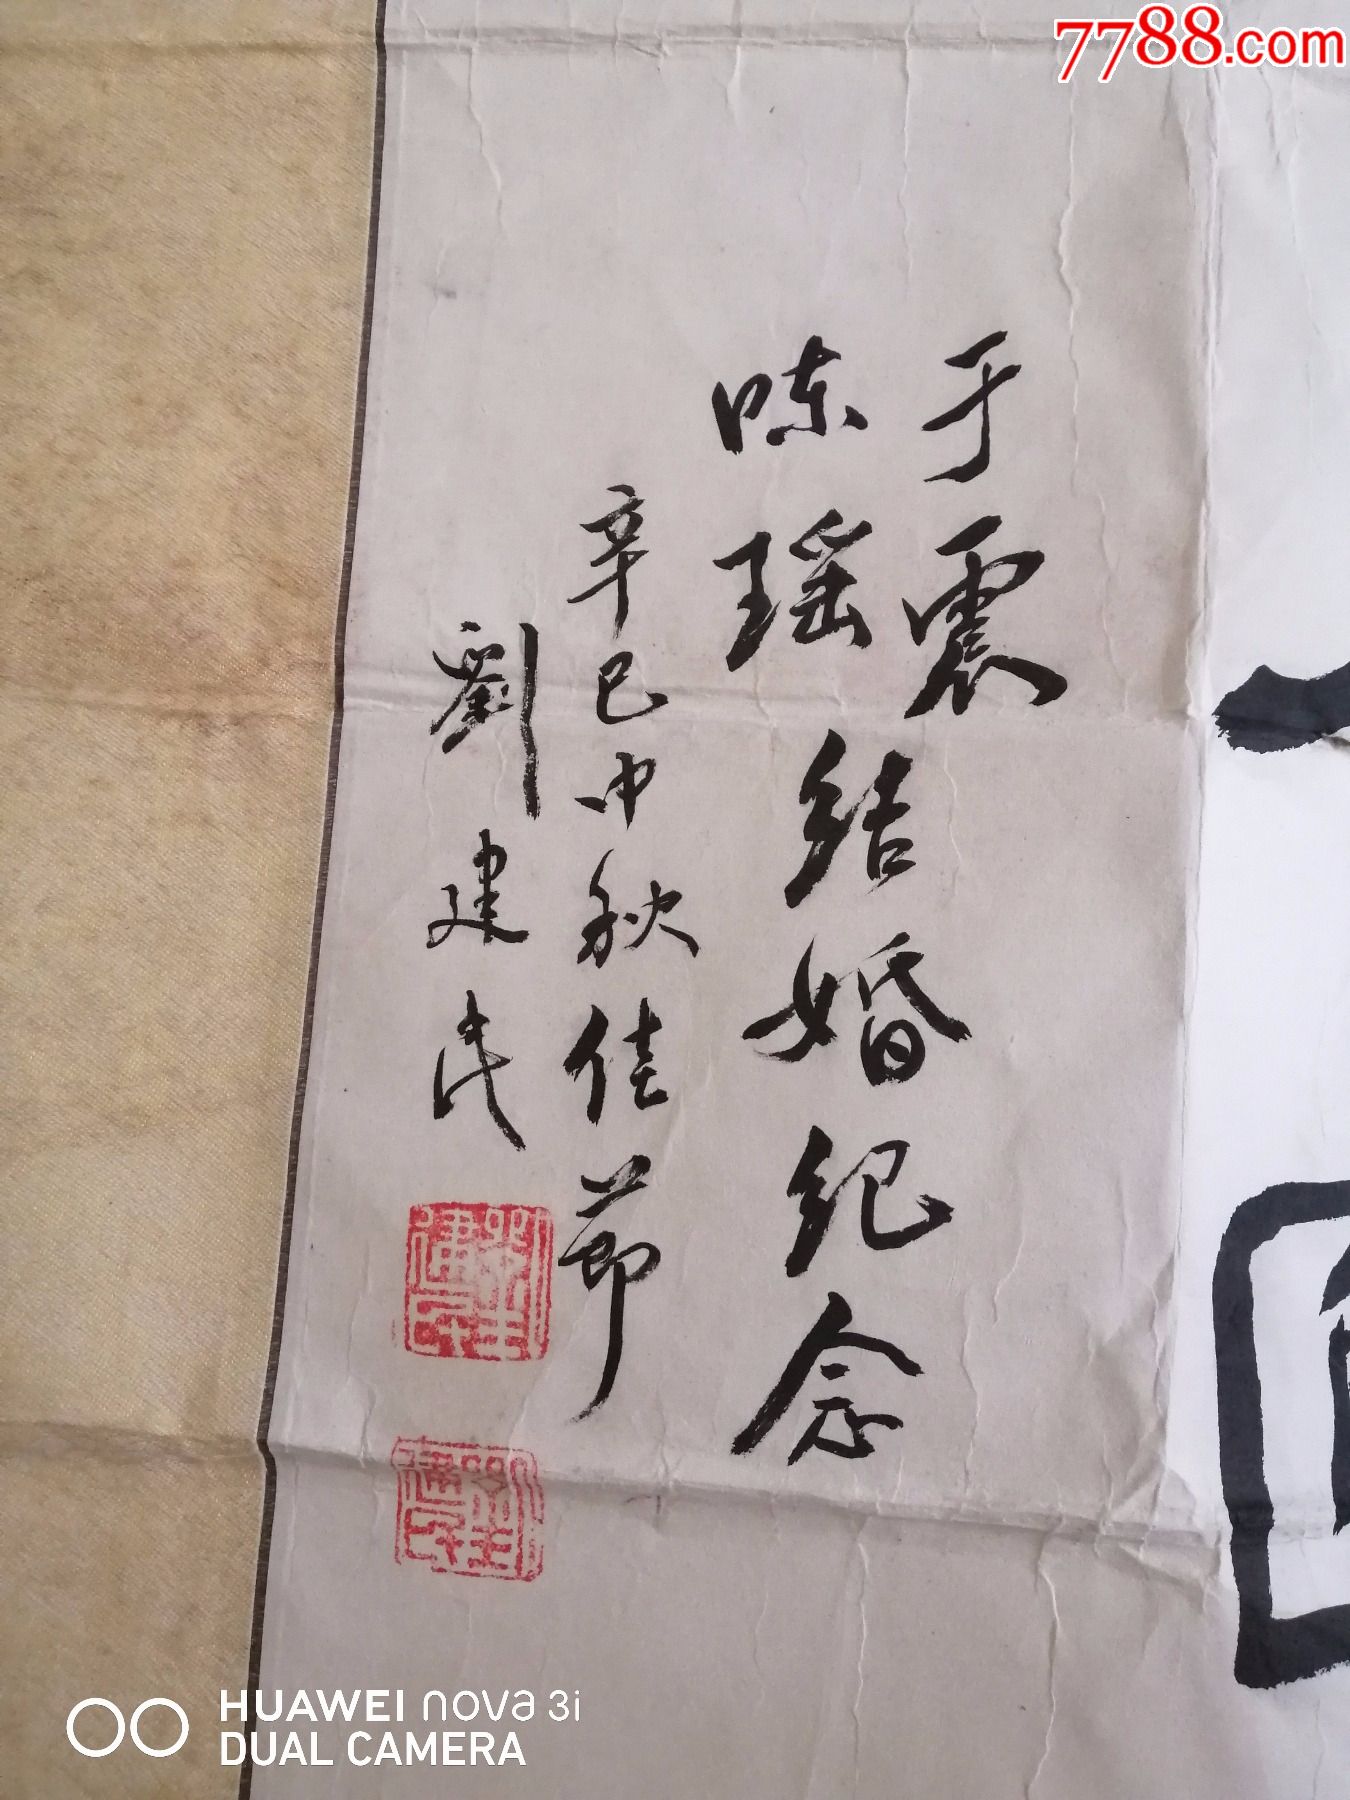 7788.com
于震
陈瑶
结婚纪念
辛巳中秋佳節
劉建民
HUAWEI nova 3i
DUAL CAMERA